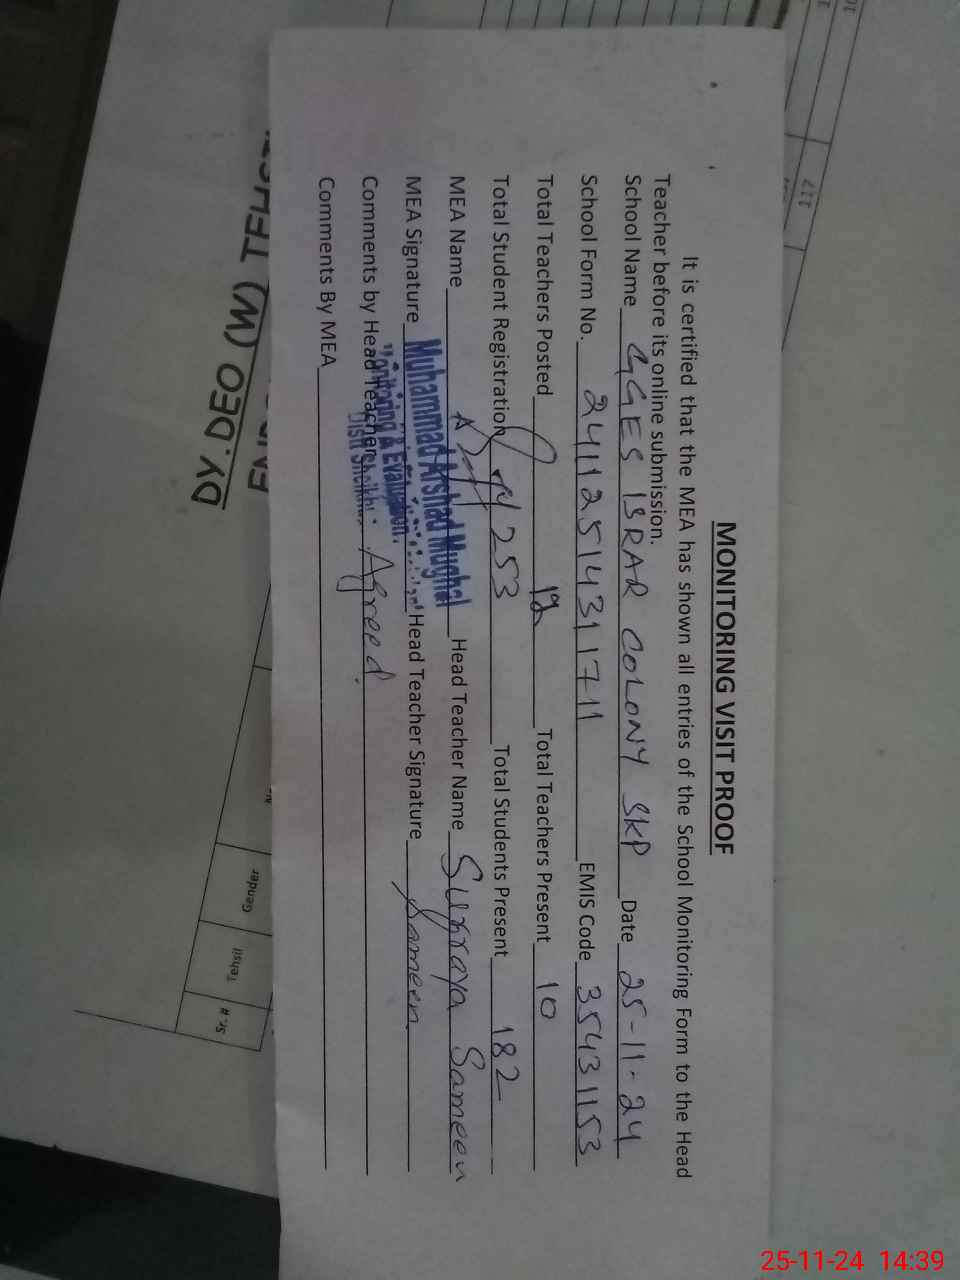 MONITORING VISIT PROOF
It is certified that the MEA has shown all entries of the School Monitoring Form to the Head
Teacher before its online submission.
School Name GGES ISRAR COLONY SKP Date 25-11-24
School Form No. 24112514311711 EMIS Code 35431153
Total Teachers Posted 12 Total Teachers Present 10
Total Student Registration 253 Total Students Present 182
MEA Name Muhammad Arshad Mughal Head Teacher Name Surraya Sameen
MEA Signature Monitoring & Evaluation Head Teacher Signature Sameen
Comments by Head Teacher Agreed.
Comments By MEA
DY. DEO (W)
Gender
Tehsil
Sr. #
25-11-24 14:39